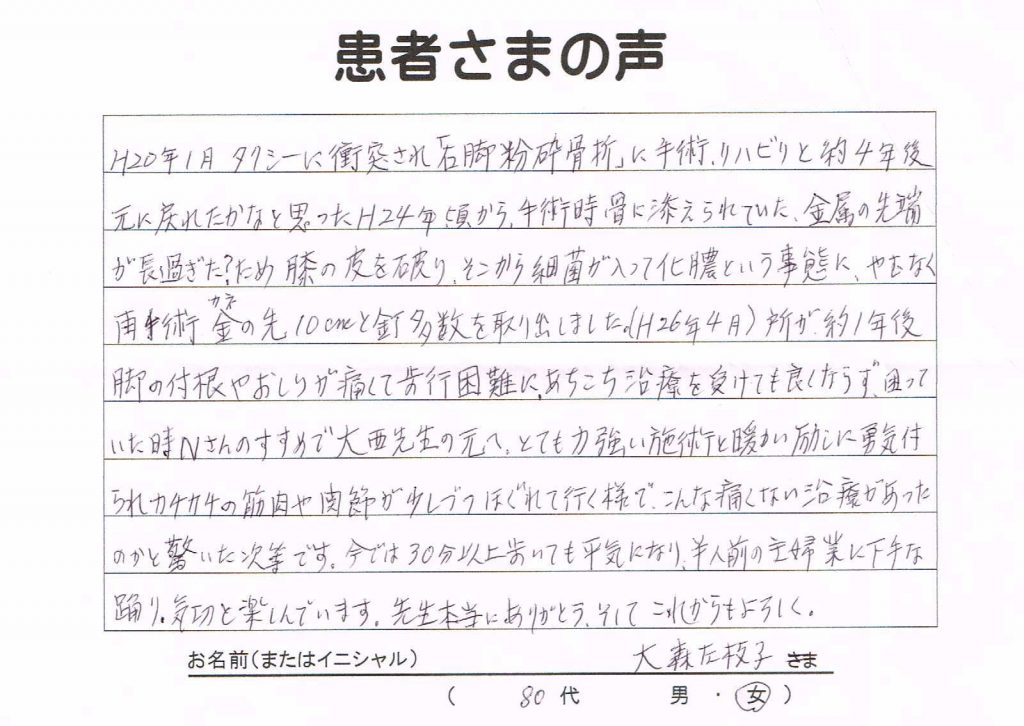 患者さまの声
H20年1月 タクシーに衝突され「右脚粉砕骨折」に手術、リハビリと約4年後
元に戻れたかなと思ったH24年頃から、手術時骨に添えられていた、金属の先端
が長過ぎた?ため膝の皮を破り、そこから細菌が入って化膿という事態に、やむなく
再手術 金(カネ)の先10cmと釘多数を取り出しました。(H26年4月)所が、約1年後
脚の付根やおしりが痛くて歩行困難に、あちこち治療を受けても良くならず、困って
いた時Nさんのすすめで大西先生の元へ、とても力強い施術と暖かい励しに勇気付
られカチカチの筋肉や関節が少しづつほぐれて行く様で、こんな痛くない治療があった
のかと驚いた次第です。今では30分以上歩いても平気になり、半人前の主婦業に下手な
踊り。気功と楽しんでいます。先生本当にありがとう、そして これからもよろしく。
お名前(またはイニシャル) 大森左枝子 さま
( 80代 男・女 )